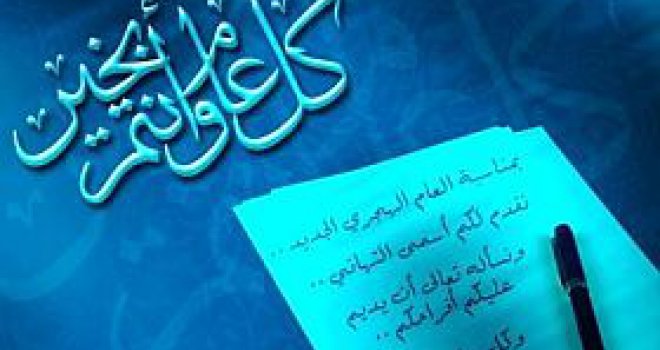 كل عام وأنتم بخير
بمناسبة العام الهجري الجديد ..
نقدم لكم أسمى التهاني ..
ونسأله تعالى أن يديم
عليكم أفراحكم ..